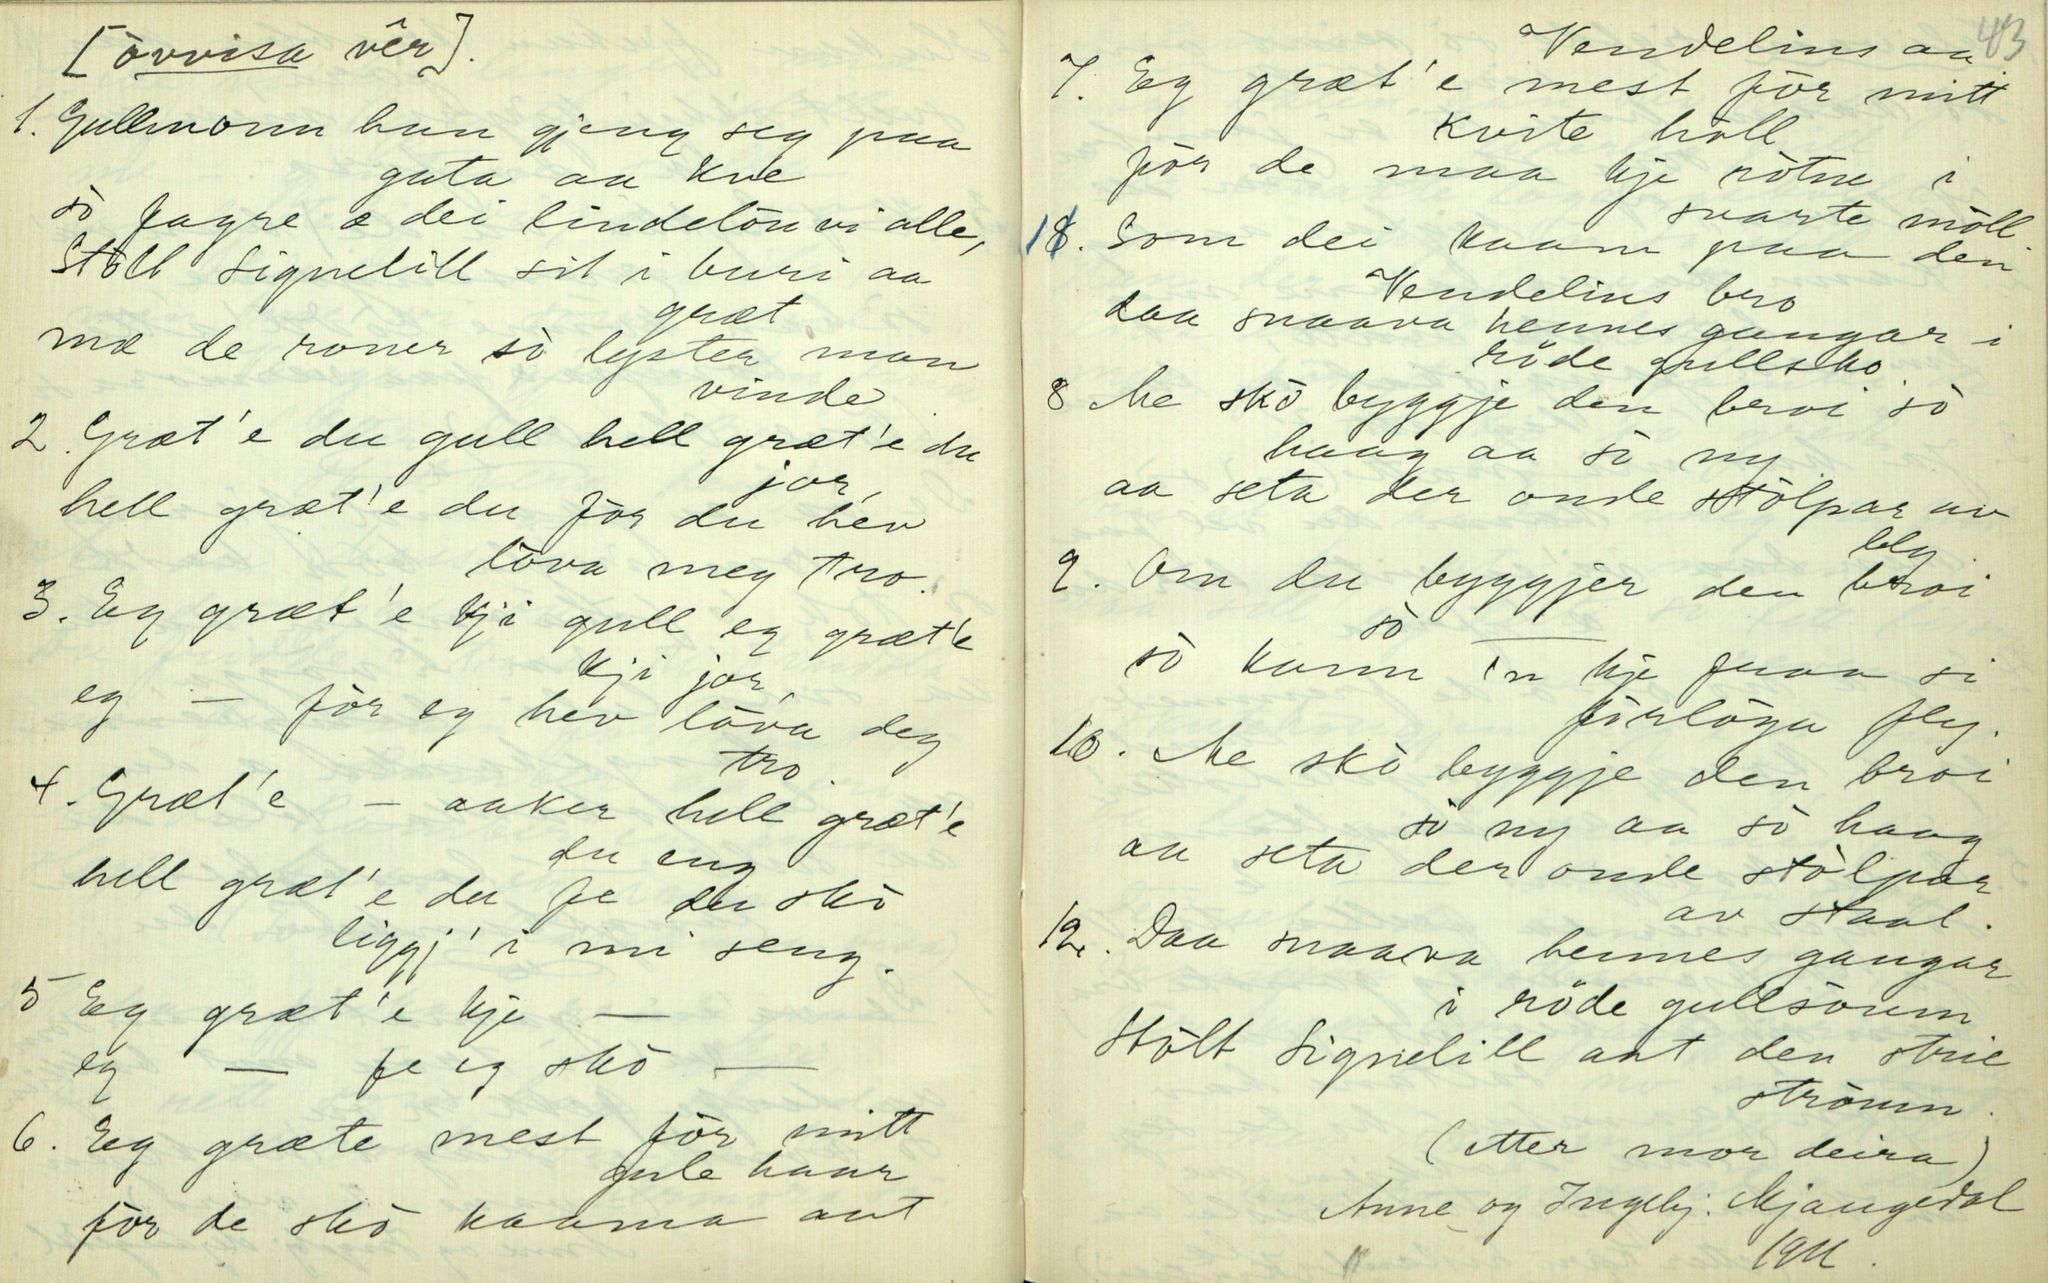 [òvvisa vêr].
1. Gullmann han gjeng seg paa
gata aa kve
sò fagre æ dei lindelöu vi alle,
Stòlt Signelill sit i buri aa
græt
mæ de roner sò lyster man
vinde
2. Græt'e du gull hell græt'e du
jor,
hell græt'e du fòr du hev
lòva meg tro.
3. Eg græt'e kji gull eg græt'e
kji jor,
eg — fòr eg hev lòva deg
tro.
4. Græt'e — aaker hell græt'e
du eng
hell græt'e du fe du skò
liggj' i mi seng.
5 Eg græt'e kje —
eg — fe eg skò —
6. Eg græte mest fòr mitt
gule haar
fòr de skò kaama aut
43
Vendelins aa
7. Eg græt'e mest fòr mitt
kvite hòll
fòr de maa kje ròtne i
svarte mòll.
18. Som dei kaam paa den
Vendelins bro
daa snaava hennes gangar i
röde gullsko
8 Me skò byggje den broi sò
haag aa sò ny
aa seta der onde stòlpar av
bly
9. Om du byggjer den broi
sò —
sò kann in kje fraa si
fòrlöga fly.
10. Me skò byggje den broi
sò ny aa sò haag
aa seta der onde stòlpar
av staal.
12. Daa snaava hennes gangar
i röde gullsöum
Stòlt Signelill aat den strie
ströum.
(etter mor deira)
Anne og Ingebj. Mjaugedal
1911.